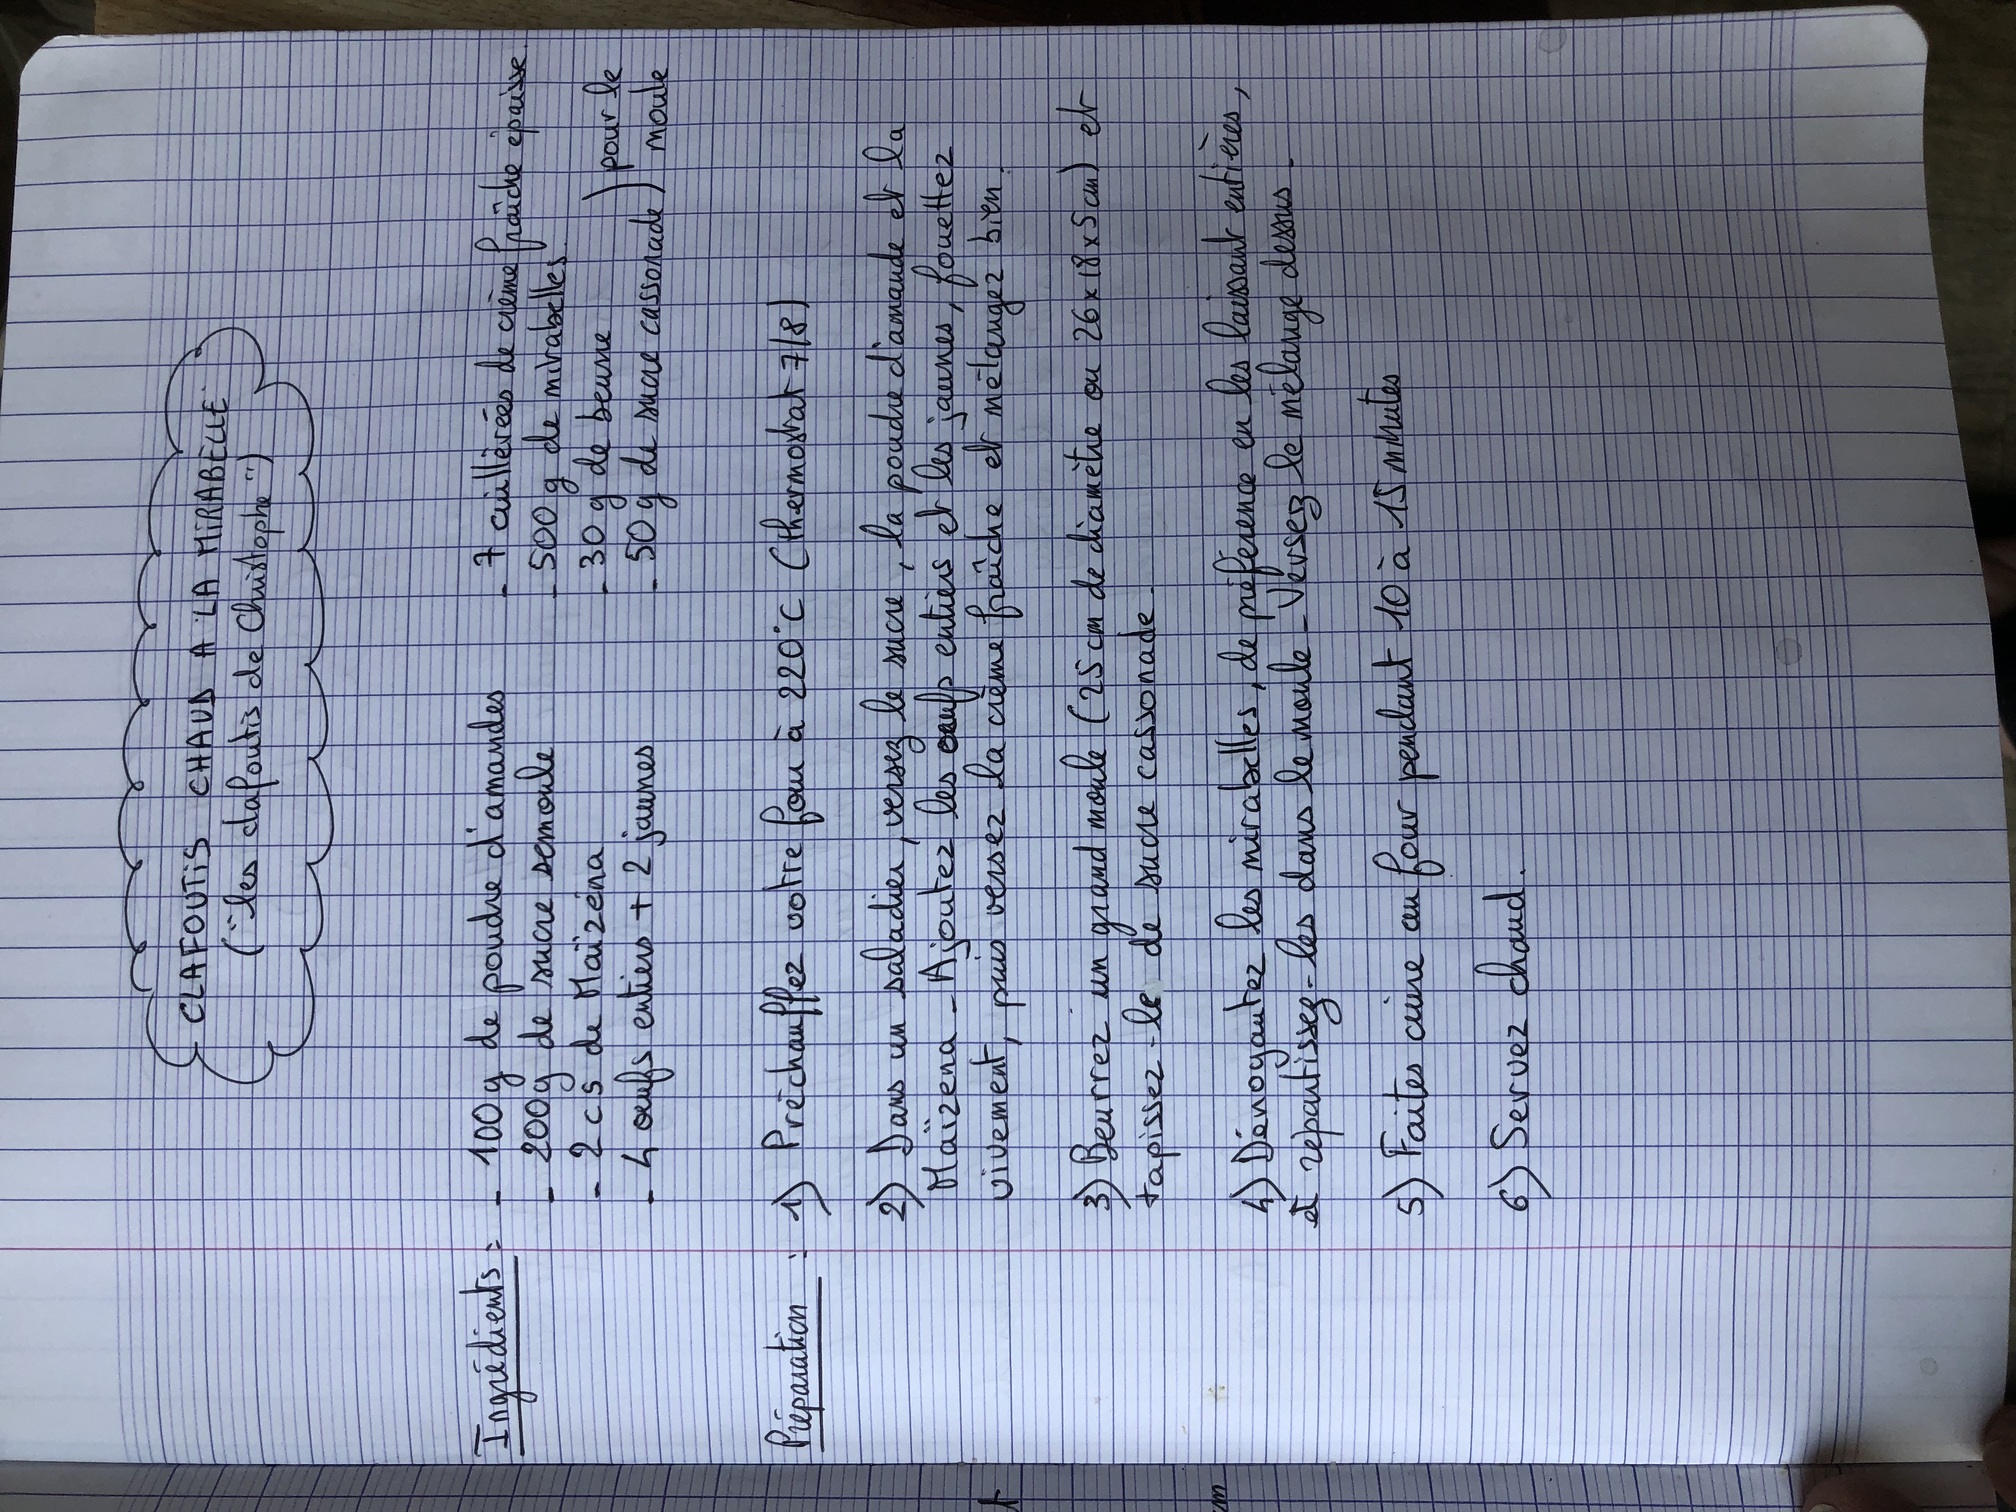 CLAFOUTIS CHAUD A LA MIRABELLE
("les clafoutis de Christophe")
Ingrédients : - 100 g de poudre d'amandes - 7 cuillérées de crème fraîche épaisse
- 200 g de sucre semoule - 500 g de mirabelles
- 2 cs de Maïzena - 30 g de beurre ) pour le
- 4 œufs entiers + 2 jaunes - 50 g de sucre cassonade ) moule
Préparation : 1) Préchauffez votre four à 220°C (thermostat 7/8)
2) Dans un saladier, versez le sucre, la poudre d'amande et la
Maïzena - Ajoutez les œufs entiers et les jaunes, fouettez
vivement, puis versez la crème fraîche et mélangez bien.
3) Beurrez un grand moule (25 cm de diamètre ou 26 x 18 x 5 cm) et
tapissez-le de sucre cassonade.
4) Dénoyautez les mirabelles, de préférence en les laissant entières,
et répartissez-les dans le moule - Versez le mélange dessus.
5) Faites cuire au four pendant 10 à 15 minutes
6) Servez chaud.